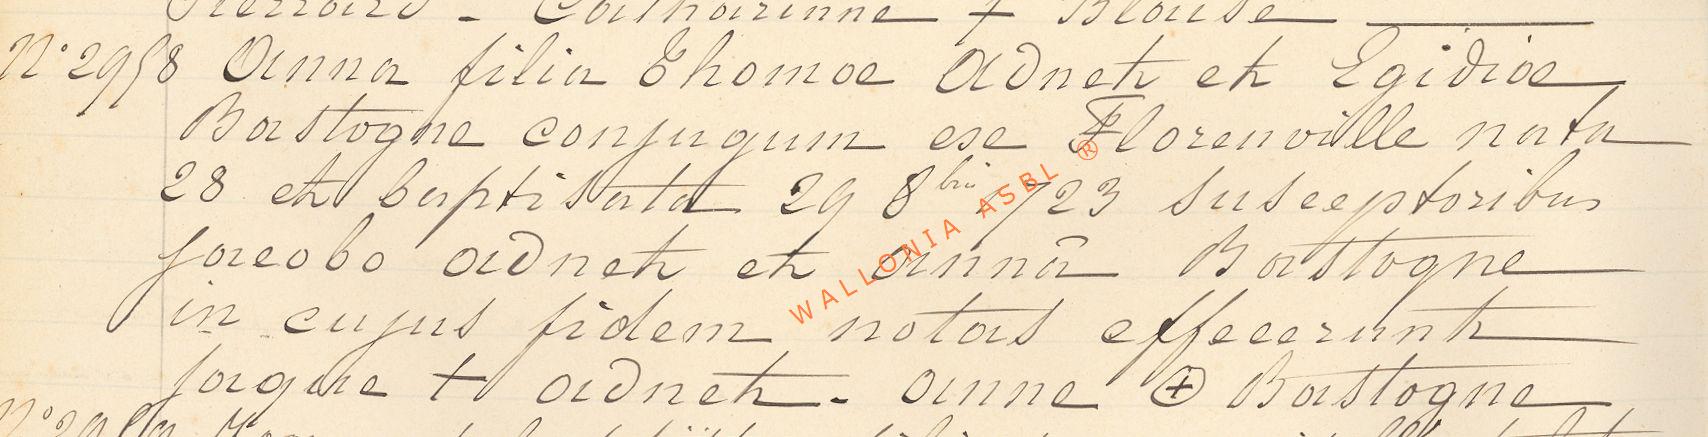 Pierrard - Catharinne + Blaise
N° 2958 Anna filia Thomoe Adnet et Egidioe
Bastogne conjugum ese Florenville nata
28 et baptisata 29 8bris 1723 susceptoribus
jacobo adnet et annâ Bastogne
in cujus fidem notas effecerunt
jaque + adnet - anne + Bastogne
WALLONIA ASBL ®